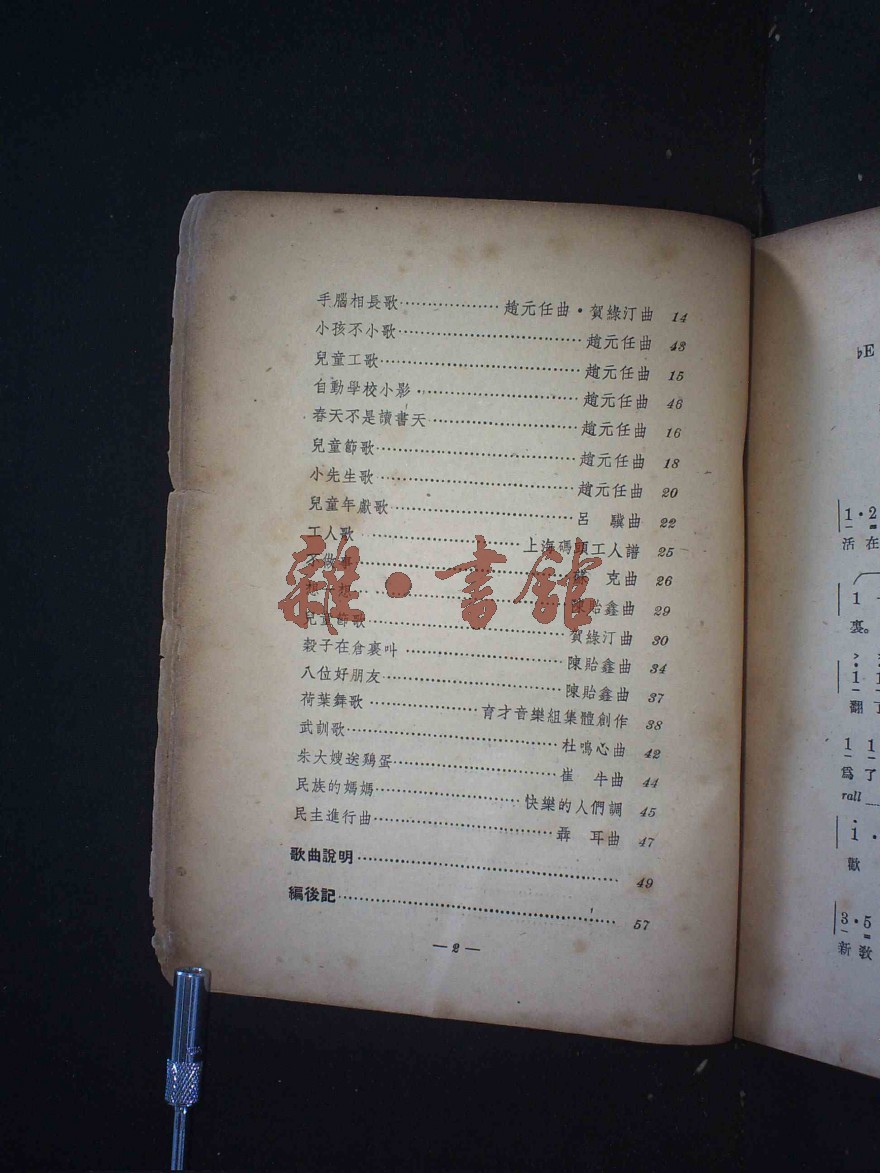 手腦相長歌………………趙元任曲・賀綠汀曲 14
小孩不小歌………………趙元任曲 43
兒童工歌………………趙元任曲 15
自動學校小影………………趙元任曲 46
春天不是讀書天………………趙元任曲 16
兒童節歌………………趙元任曲 18
小先生歌………………趙元任曲 20
兒童年獻歌………………呂 驥曲 22
工人歌………………上海碼頭工人譜 25
不做事………………克曲 26
………………陳貽鑫曲 29
兒童節歌………………賀綠汀曲 30
穀子在倉裏叫………………陳貽鑫曲 34
八位好朋友………………陳貽鑫曲 37
荷葉舞歌………………育才音樂組集體創作 38
武訓歌………………杜鳴心曲 42
朱大嫂送鷄蛋………………崔 牛曲 44
民族的媽媽………………快樂的人們調 45
民主進行曲………………聶 耳曲 47
歌曲說明………………49
編後記………………57
— 2 —
雜・書館
♭E
1・2
活在
1
裏。
1 1
翻
1 1
爲了
rall
1・
歡
3・5
新歌